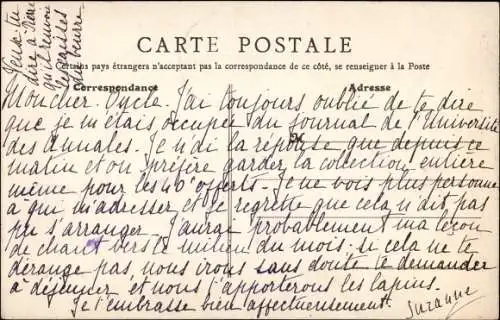 Veux-tu
dire à Pierre
qu'il renvoie
les
CARTE POSTALE
Certains pays étrangers n'acceptant pas la correspondance de ce côté, se renseigner à la Poste
Correspondance
Adresse
Mon cher Oncle. J'ai toujours oublié de te dire
que je m'étais occupée du journal de l'Université
des annales. Je n'ai la réponse que depuis ce
matin et on préfère garder la collection entière
même pour les 40f offerts. Je ne vois plus personne
à qui m'adresser et je regrette que cela n'ait pas
pu s'arranger. J'aurai probablement ma leçon
de chant vers le milieu du mois; si cela ne te
dérange pas, nous irons sans doute te demander
à déjeuner et nous t'apporterons les lapins.
Je t'embrasse bien affectueusement.
Suzanne